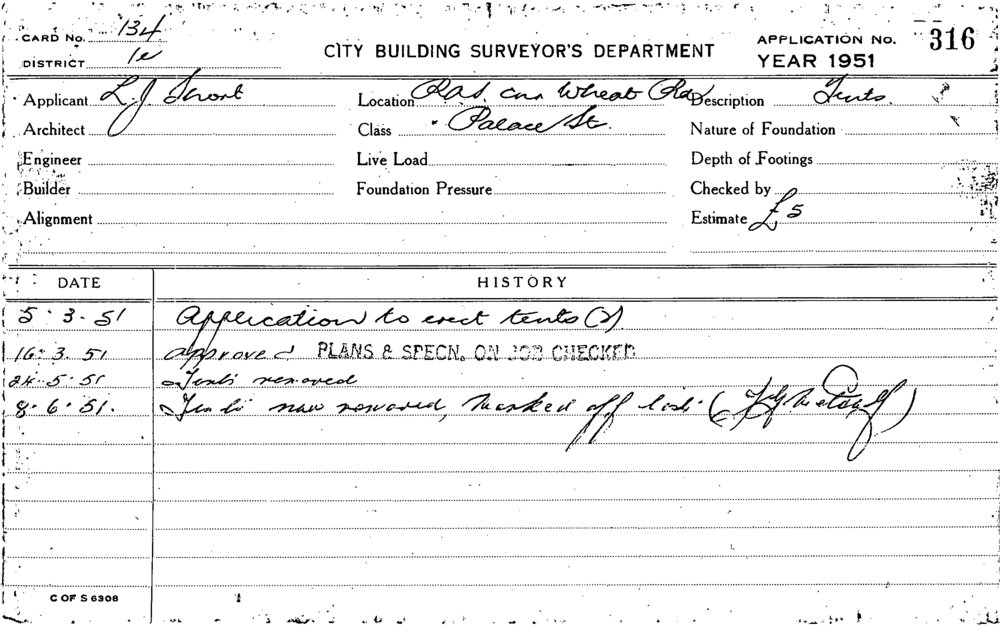 CARD No. 134
DISTRICT 1e
CITY BUILDING SURVEYOR'S DEPARTMENT
APPLICATION No. 316
YEAR 1951
Applicant L. J. Short Location R.A.S. Cnr Wheat Rd Description Tents
Architect Class " Palace St. Nature of Foundation
Engineer Live Load Depth of Footings
Builder Foundation Pressure Checked by
Alignment Estimate £5
DATE HISTORY
5.3.51 Application to erect tents (2)
16.3.51 approved PLANS & SPECN. ON JOB CHECKED
24.5.51 Tents removed
8.6.51. Tents now removed, marked off
C OF S 6308